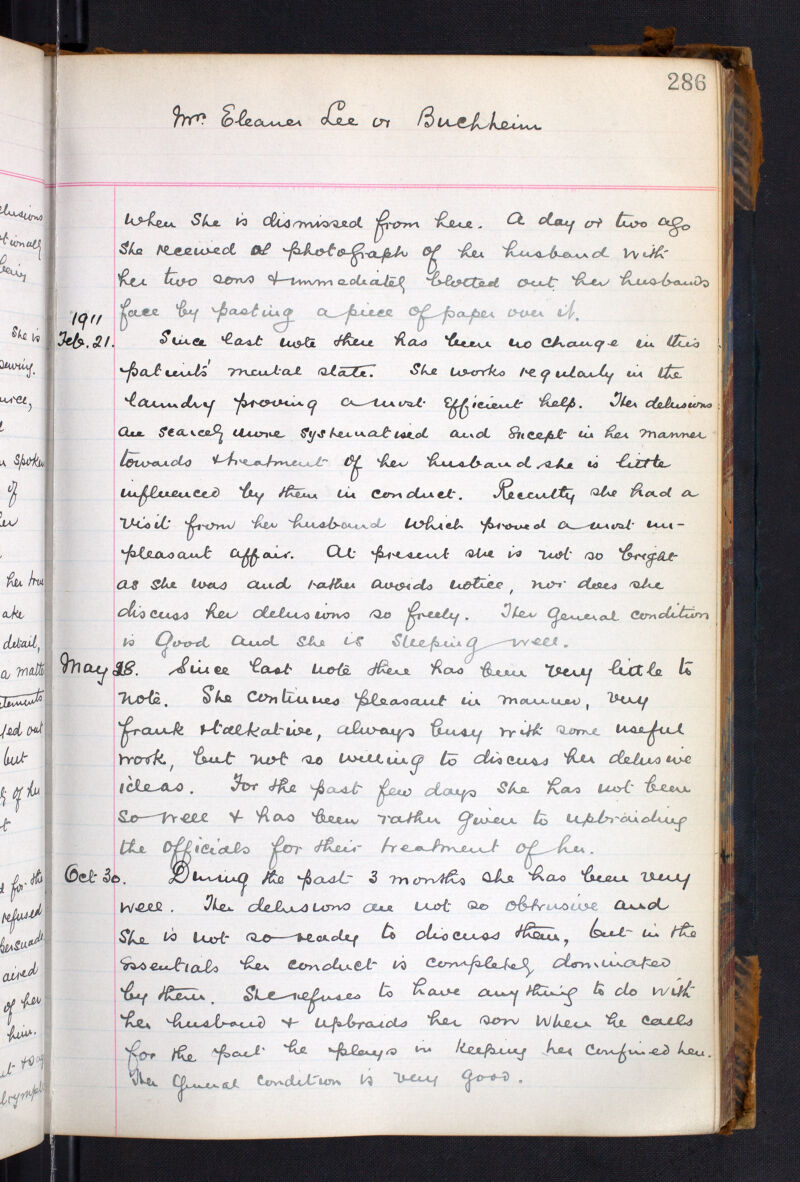 286
Mrs. Eleanor Lee or Buchheim
when she is dismissed from here. A day or two ago
she received a photograph of her husband with
her two sons & immediately blotted out her husbands
face by pasting a piece of paper over it.
1911
Feb. 21. Since last note there has been no change in this
patients' mental state. She works regularly in the
laundry proving a most efficient help. Her delusions
are scarcely more systematised and except in her manner
towards & treatment of her husband she is little
influenced by them in conduct. Recently she had a
visit from her husband which proved a most un-
pleasant affair. At present she is not so bright
as she was and rather avoids notice, nor does she
discuss her delusions so freely. Her general condition
is good and she is sleeping well.
May 28. Since last note there has been very little to
note. She continues pleasant in manner, very
frank & talkative, always busy with some useful
work, but not so willing to discuss her delusive
ideas. For the past few days she has not been
so well & has been rather given to upbraiding
the officials for their treatment of her.
Oct 30. During the past 3 months she has been very
well. Her delusions are not so obtrusive and
she is not so ready to discuss them, but in the
essentials her conduct is completely dominated
by them. She refuses to have anything to do with
her husband & upbraids her son when he calls
for the part he plays in keeping her confined here.
Her general condition is very good.
She is
sewing.
spoken
of
her true
detail,
a matter
out
but
of her
for the
refused
persuade
of her
him.